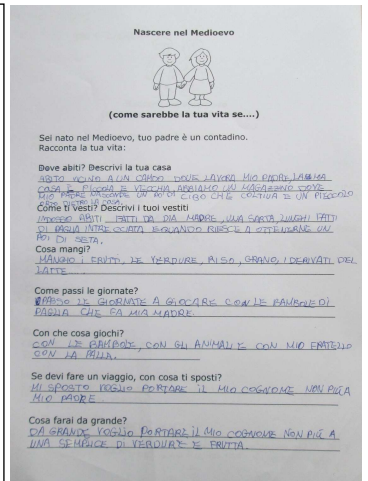 Nascere nel Medioevo
(come sarebbe la tua vita se....)
Sei nato nel Medioevo, tuo padre è un contadino.
Racconta la tua vita:
Dove abiti? Descrivi la tua casa
ABITO VICINO A UN CAMPO DOVE LAVORA MIO PADRE, LA MIA
CASA È PICCOLA E VECCHIA, ABBIAMO UN MAGAZZINO DOVE
MIO PADRE NASCONDE UN PO' DI CIBO CHE COLTIVA E UN PICCOLO
DIETRO LA CASA.
Come ti vesti? Descrivi i tuoi vestiti
INDOSSO ABITI FATTI DA MIA MADRE, UNA SARTA, LUNGHI FATTI
DI PAGLIA INTRECCIATA E QUANDO RIESCE A OTTENERNE UN
PO' DI SETA.
Cosa mangi?
MANGIO I FRUTTI, LE VERDURE, RISO, GRANO, I DERIVATI DEL
LATTE.
Come passi le giornate?
PASSO LE GIORNATE A GIOCARE CON LE BAMBOLE DI
PAGLIA CHE FA MIA MADRE.
Con che cosa giochi?
CON LE BAMBOLE, CON GLI ANIMALI E CON MIO FRATELLO
CON LA PALLA.
Se devi fare un viaggio, con cosa ti sposti?
MI SPOSTO VOGLIO PORTARE IL MIO COGNOME NON PIÙ A
MIO PADRE.
Cosa farai da grande?
DA GRANDE VOGLIO PORTARE IL MIO COGNOME NON PIÙ A
UNA SEMPLICE DI VERDURE E FRUTTA.